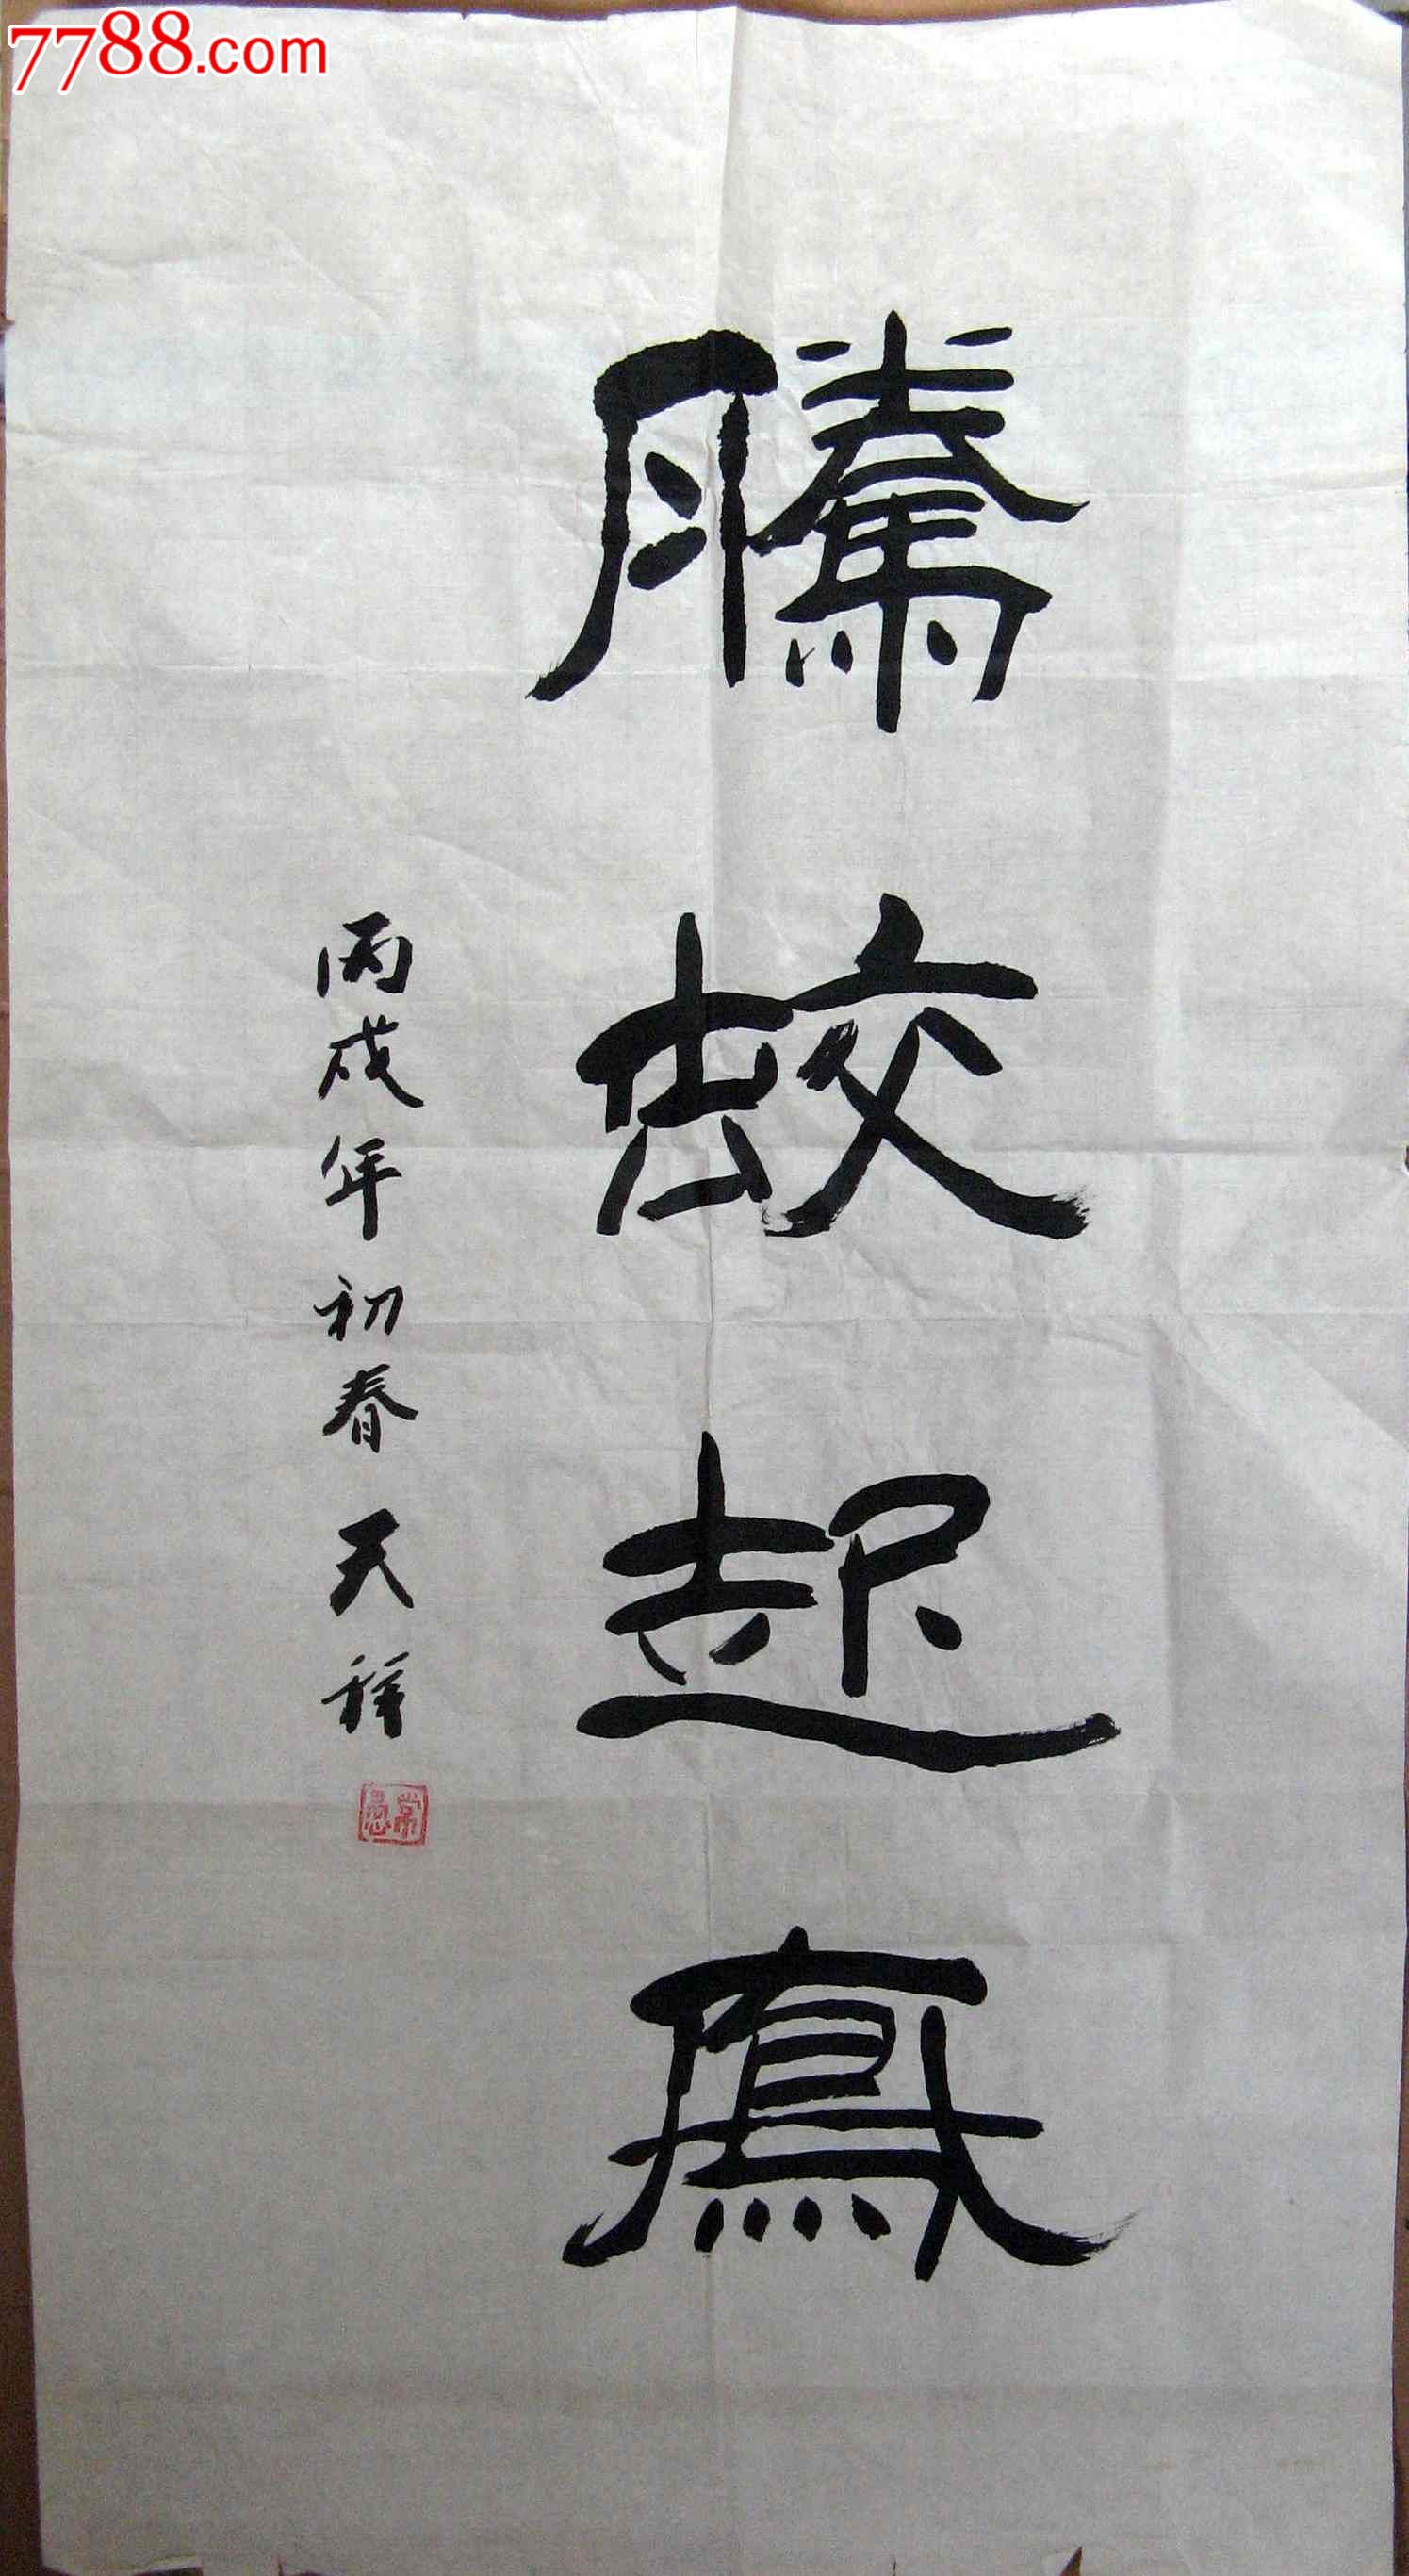 7788.com
騰蛟起鳳
丙戌年初春 天祥